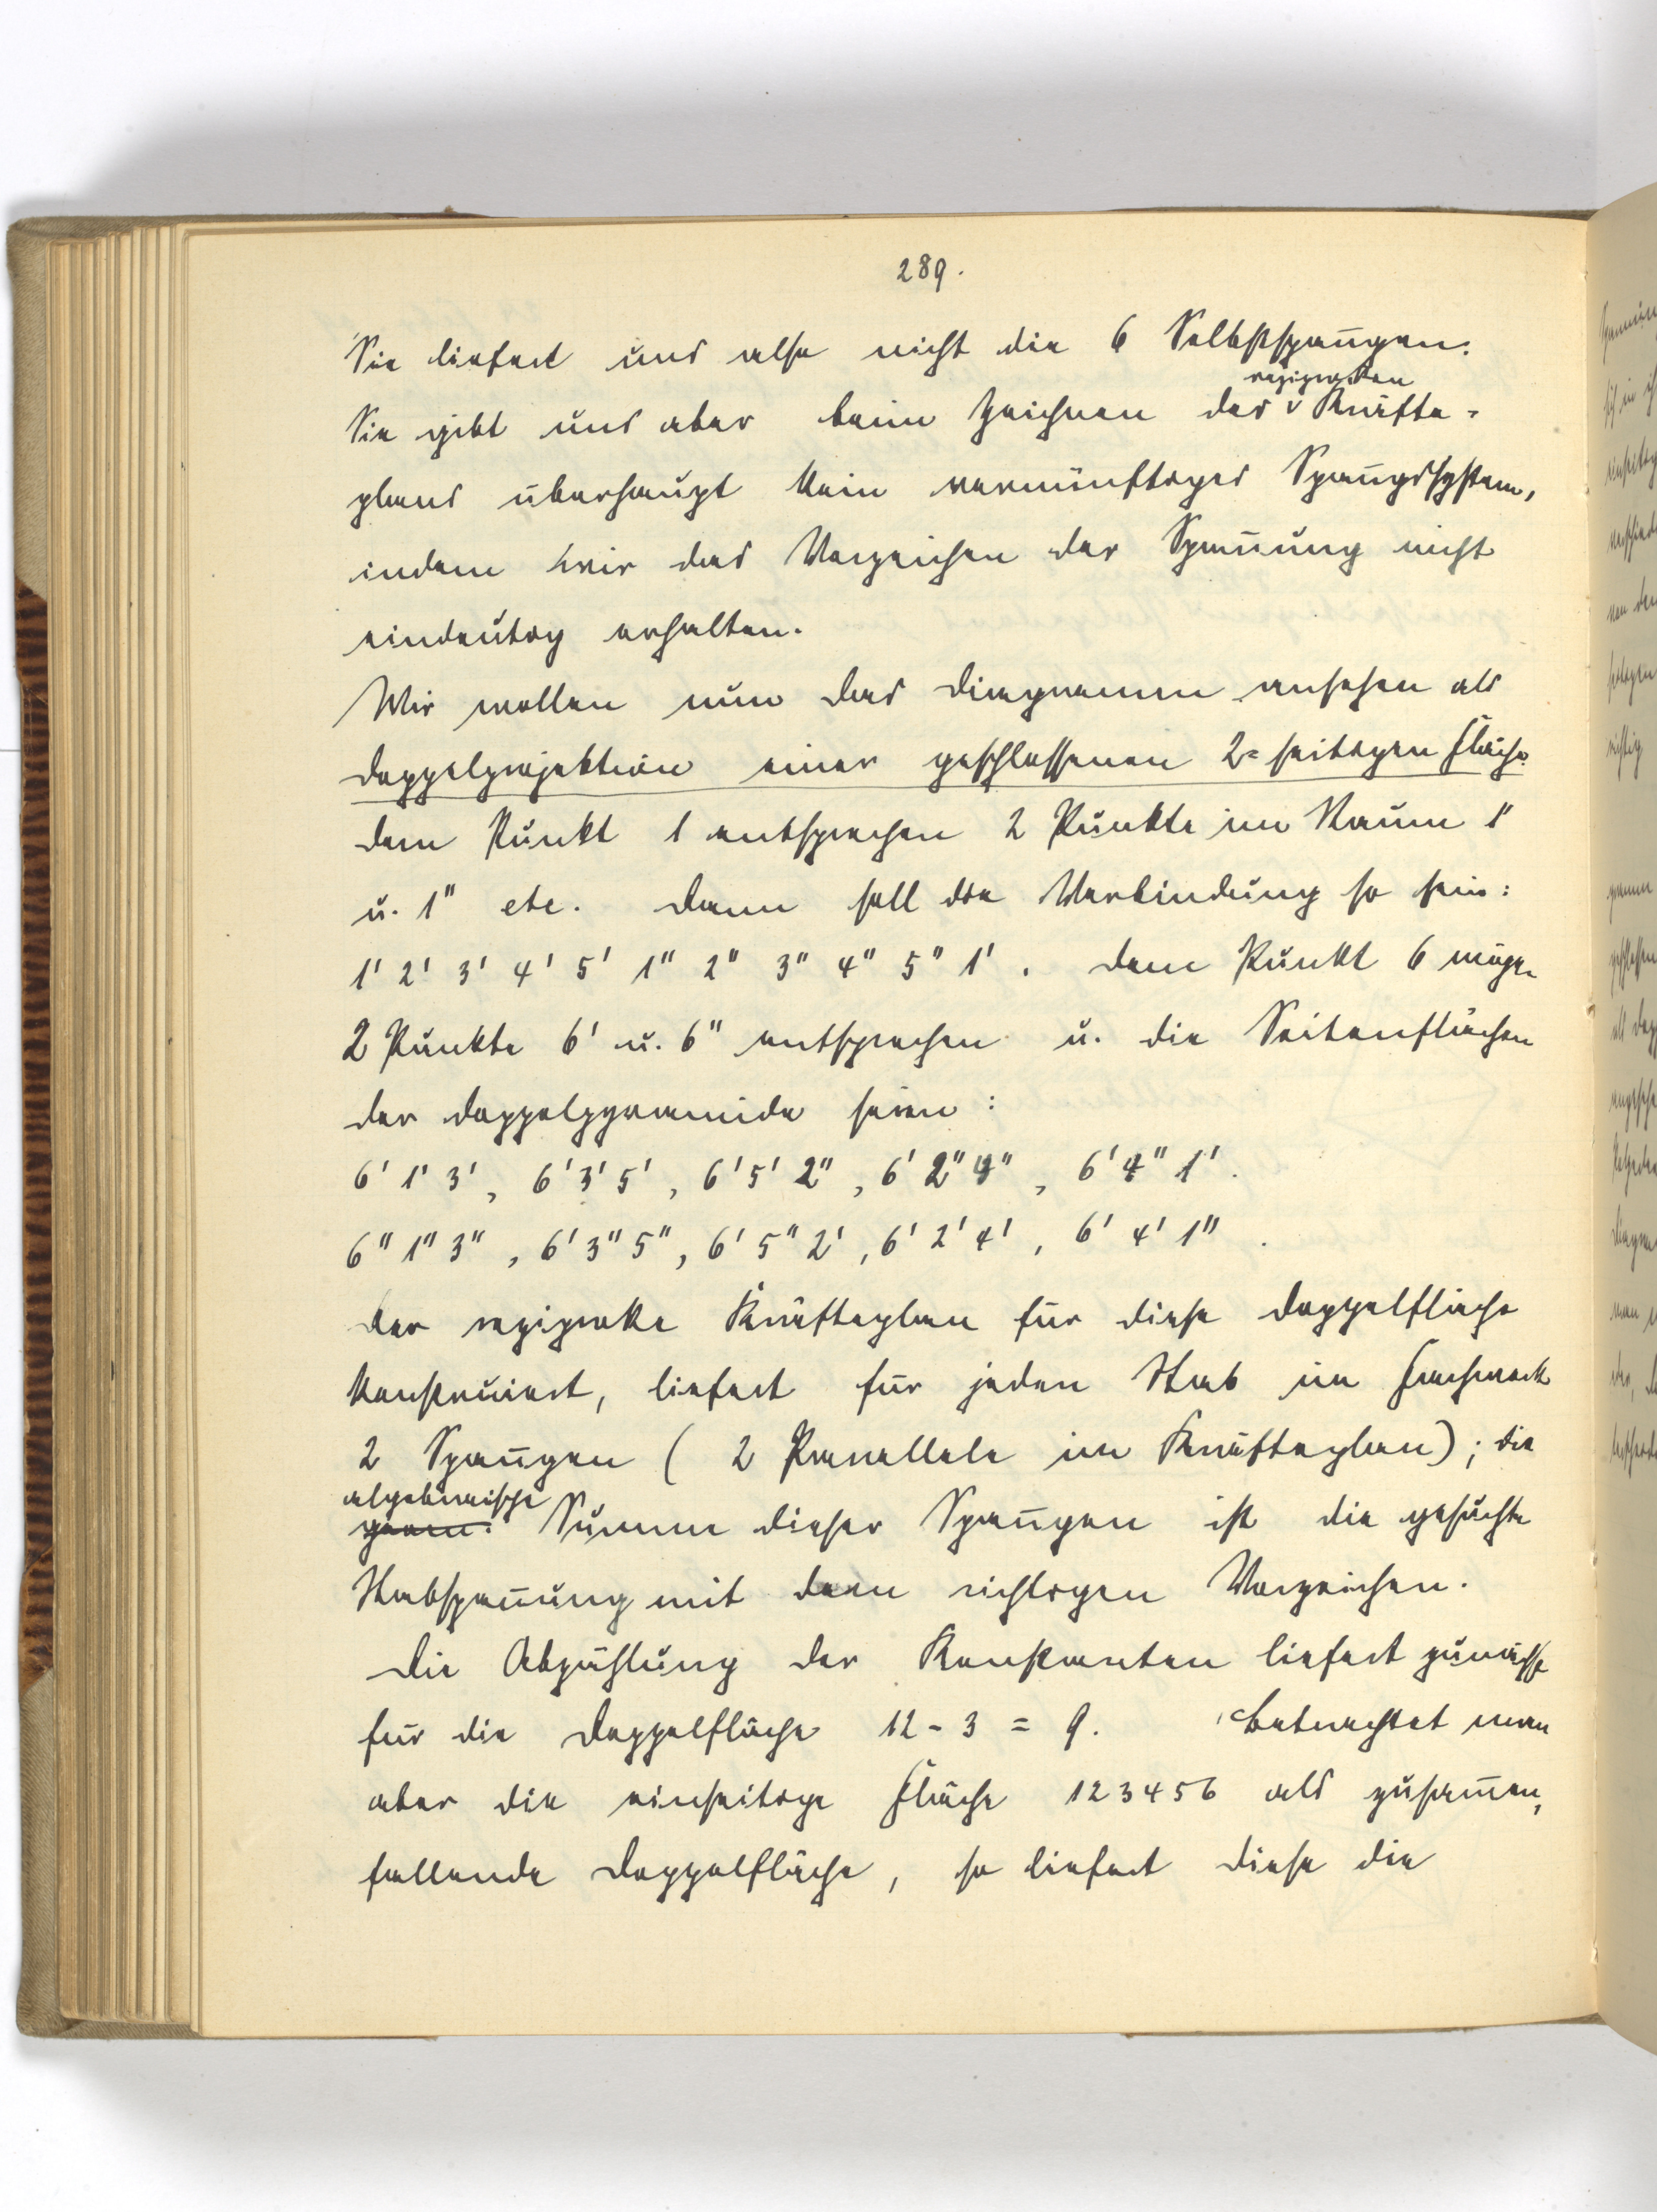 289.
Sie liefert uns also nicht die 6 Selbstspan̄gen.
reziproken
Sie gibt uns aber beim Zeichnen des ∨ Kräfte-
plans überhaupt kein vernünftiges Span̄gssystem,
indem wir das Vorzeichen der Span̄ung nicht
eindeutig erhalten.
Wir wollen nun das Diagramm ansehen als
Doppelprojektion einer geschlossenen 2-seitigen Fläche.
Dem Punkt 1 entsprechen 2 Punkte im Raum 1'
u. 1" etc. Dann soll die Verbindung so sein:
1' 2' 3' 4' 5' 1" 2" 3" 4" 5" 1'. Dem Punkt 6 mögen
2 Punkte 6' u. 6" entsprechen u. die Seitenflächen
der Doppelpyramide seien:
6' 1' 3', 6' 3' 5', 6' 5' 2", 6' 2" 4", 6' 4" 1'.
6" 1" 3", 6' 3" 5", 6' 5" 2', 6' 2' 4', 6' 4' 1".
Der reziproke Kräfteplan für diese Doppelfläche
konstruiert, liefert für jeden Stab im Fachwerk
2 Span̄gen (2 Parallele im Kräfteplan); die
algebraische
geom. Summe dieser Span̄gen ist die gesuchte
Stabspan̄ung mit dem richtigen Vorzeichen.
Die Abzählung der Konstanten liefert zunächst
für die Doppelfläche 12 - 3 = 9. Betrachtet man
aber die einseitige Fläche 123456 als zusam̄en-
fallende Doppelfläche, so liefert diese die